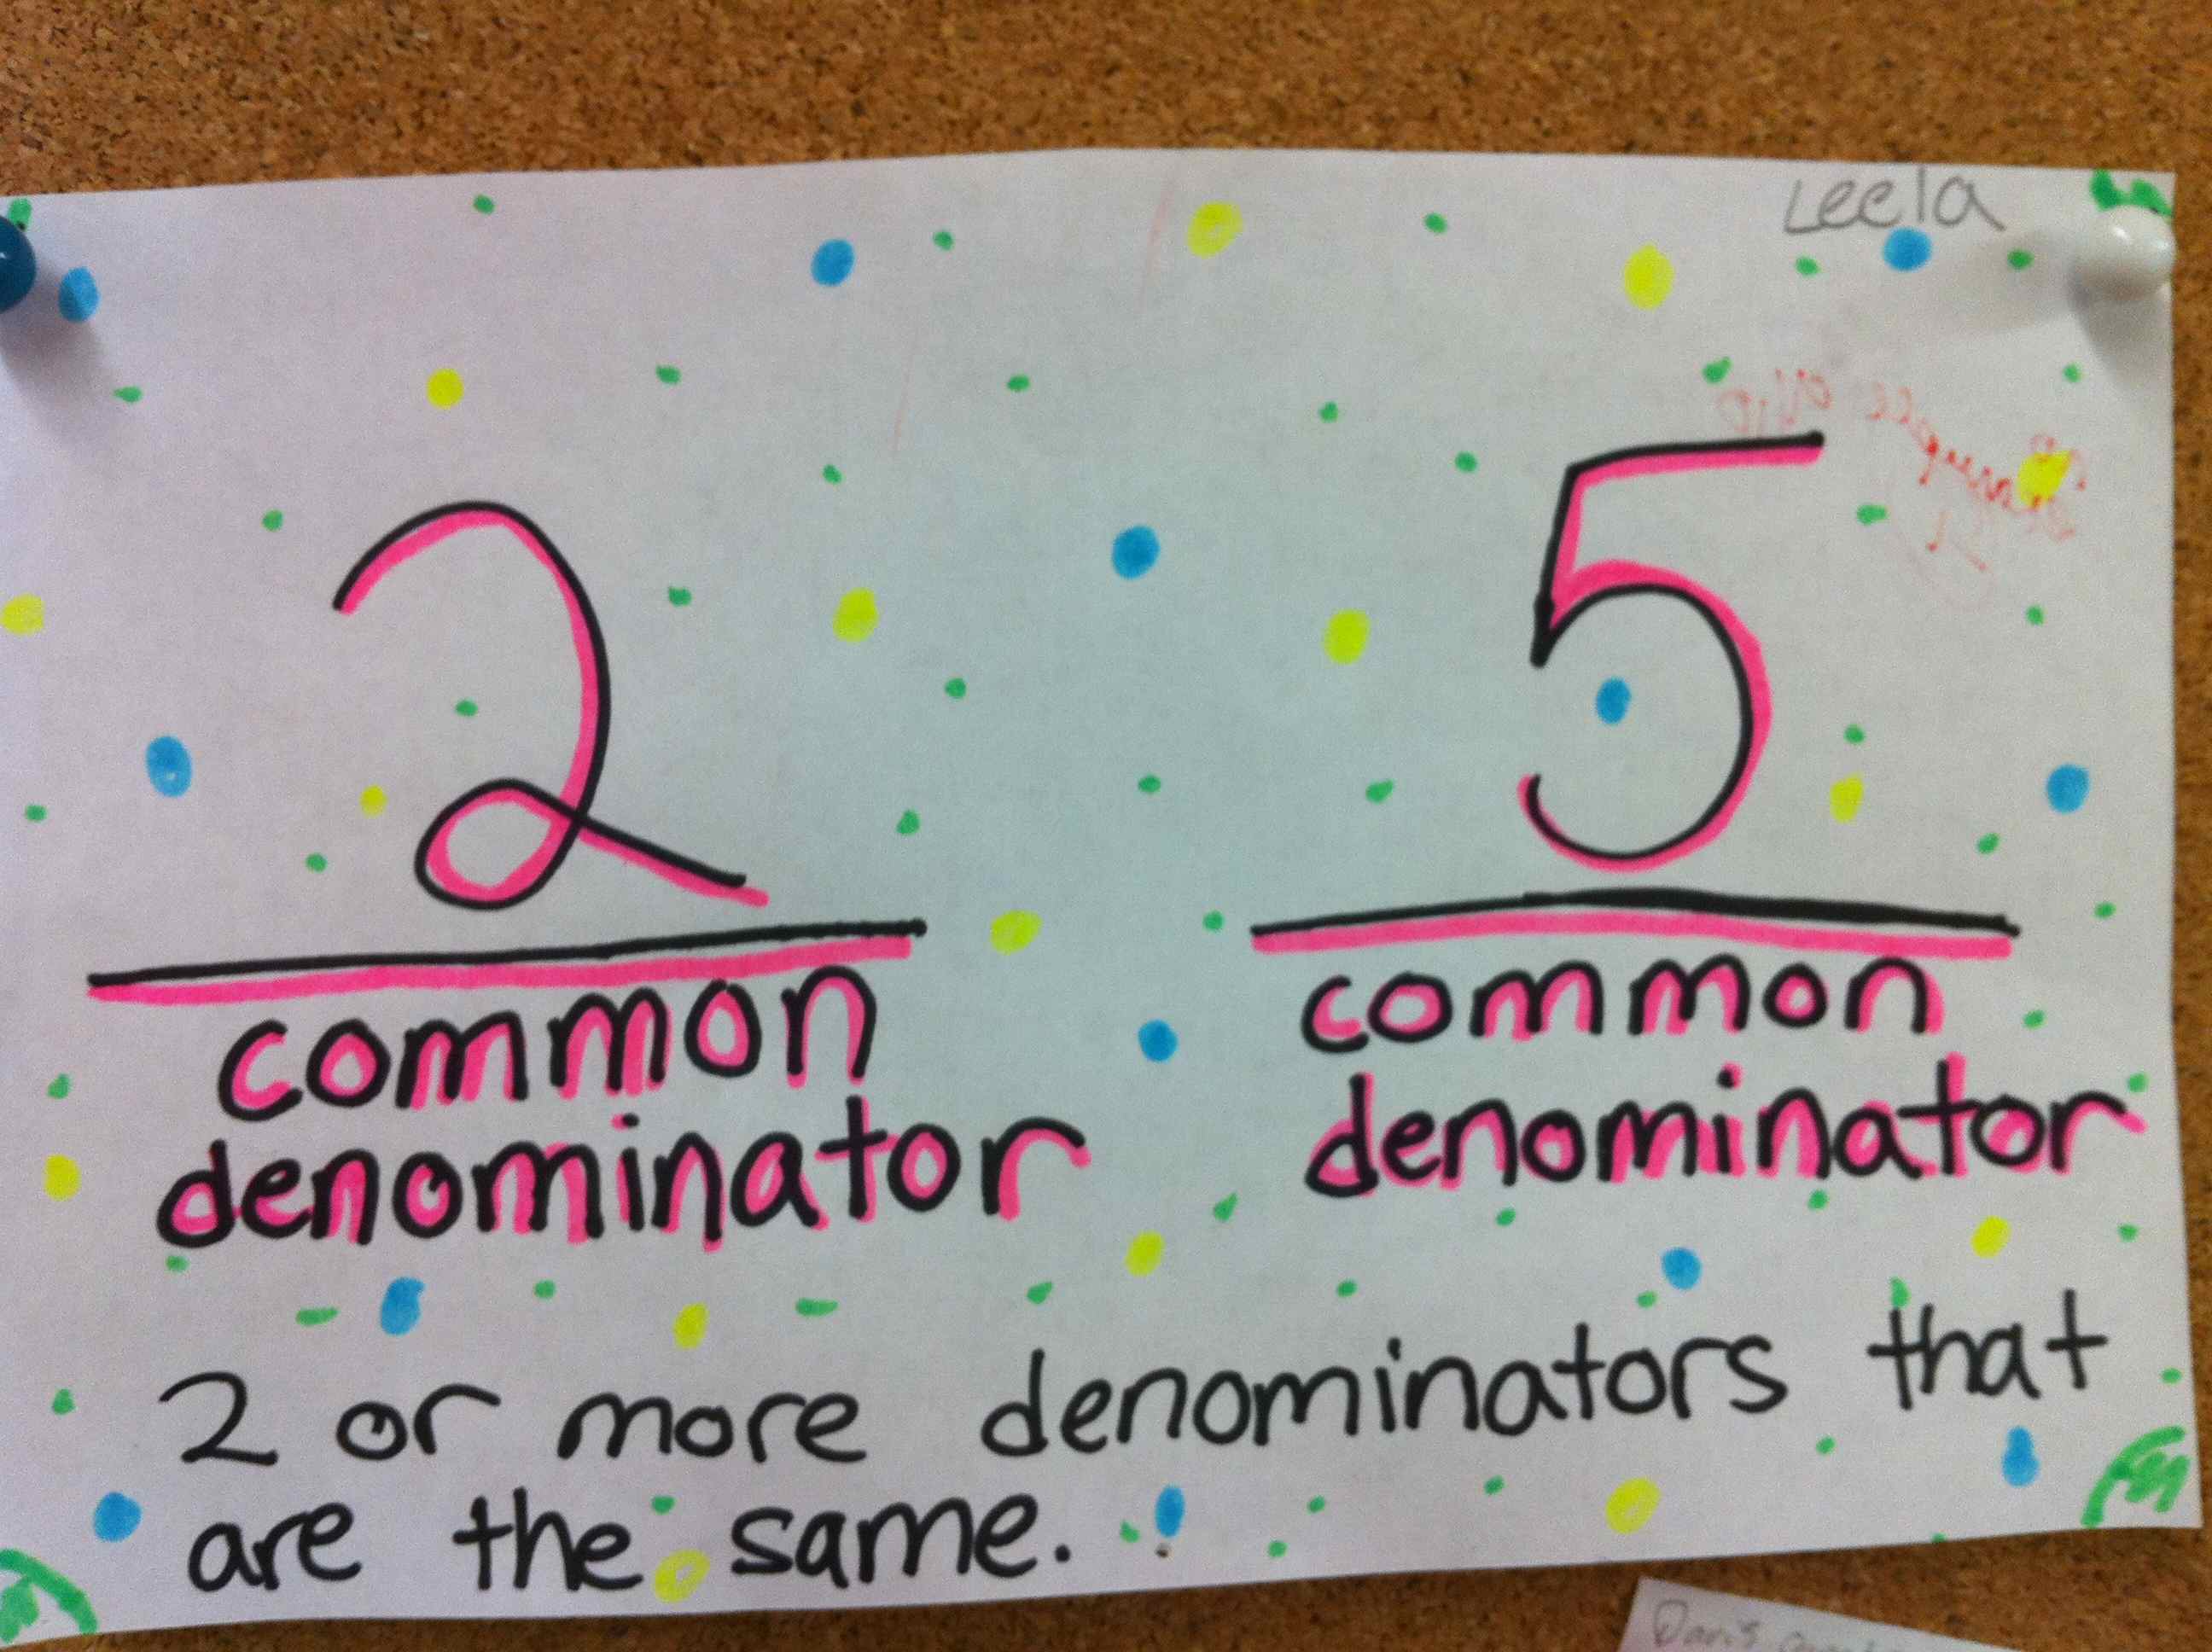 Leela
2 5
common common
denominator denominator
2 or more denominators that
are the same.